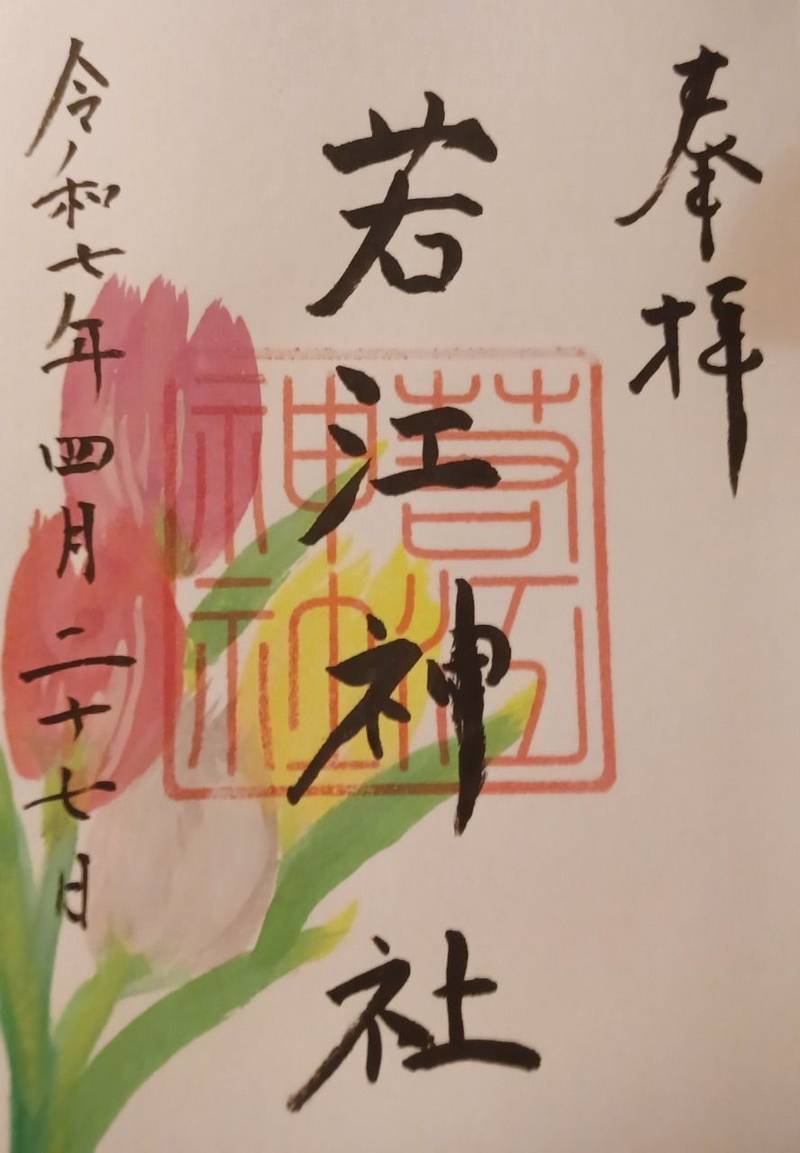 奉拝
若江神社
若江
神社
令和七年四月二十七日